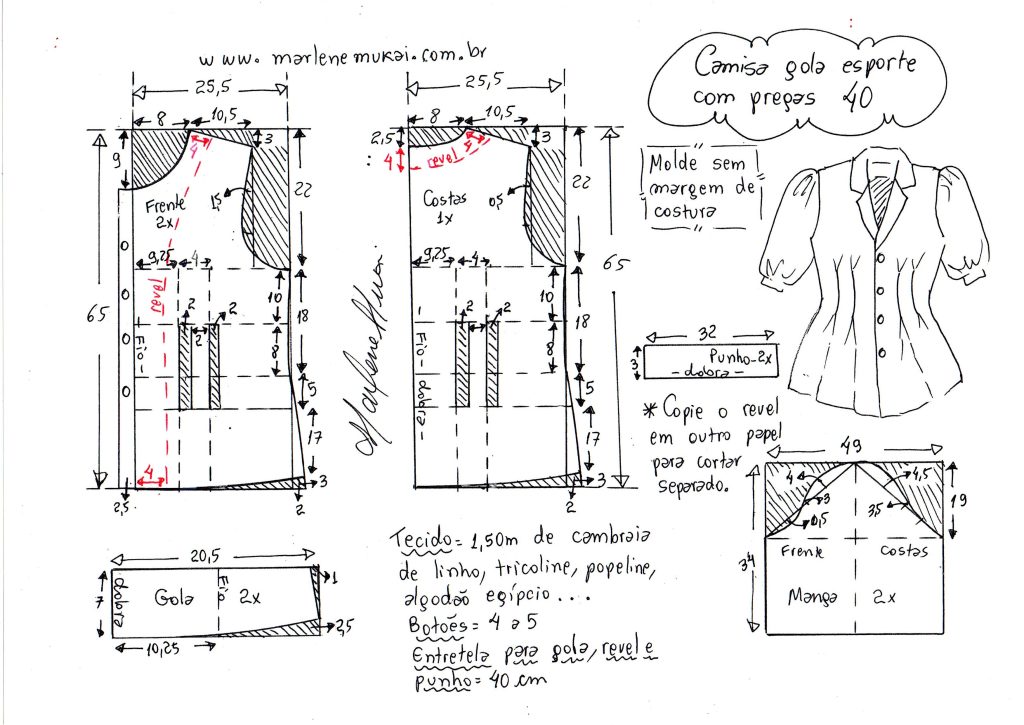 www.marlenemukai.com.br
Camisa gola esporte
com pregas 40
Molde sem
margem de
costura
25,5
8
10,5
9
4
3
22
1,5
Frente
2x
9,25
4
revel
65
2
2
2
10
18
8
5
17
Fio
4
2,5
3
2
25,5
8
10,5
2,5
4
revel
4
3
22
0,5
Costas
1x
9,25
4
65
2
2
10
18
8
5
17
- Fio - dobra -
3
2
Marlene Mukai
32
3
Punho-2x
- dobra -
* Copie o revel
em outro papel
para cortar
separado.
49
4
3
0,5
4,5
3,5
19
34
Frente
Costas
Manga 2x
20,5
7
dobra
Gola
Fio
2x
1
2,5
10,25
Tecido= 1,50m de cambraia
de linho, tricoline, popeline,
algodão egípcio....
Botões= 4 a 5
Entretela para gola, revel e
punho= 40 cm